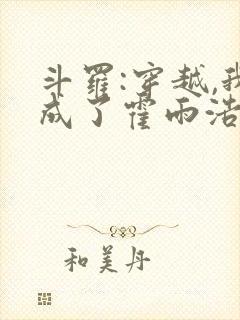 斗罗:穿越,我
成了霍雨浩
和美丹